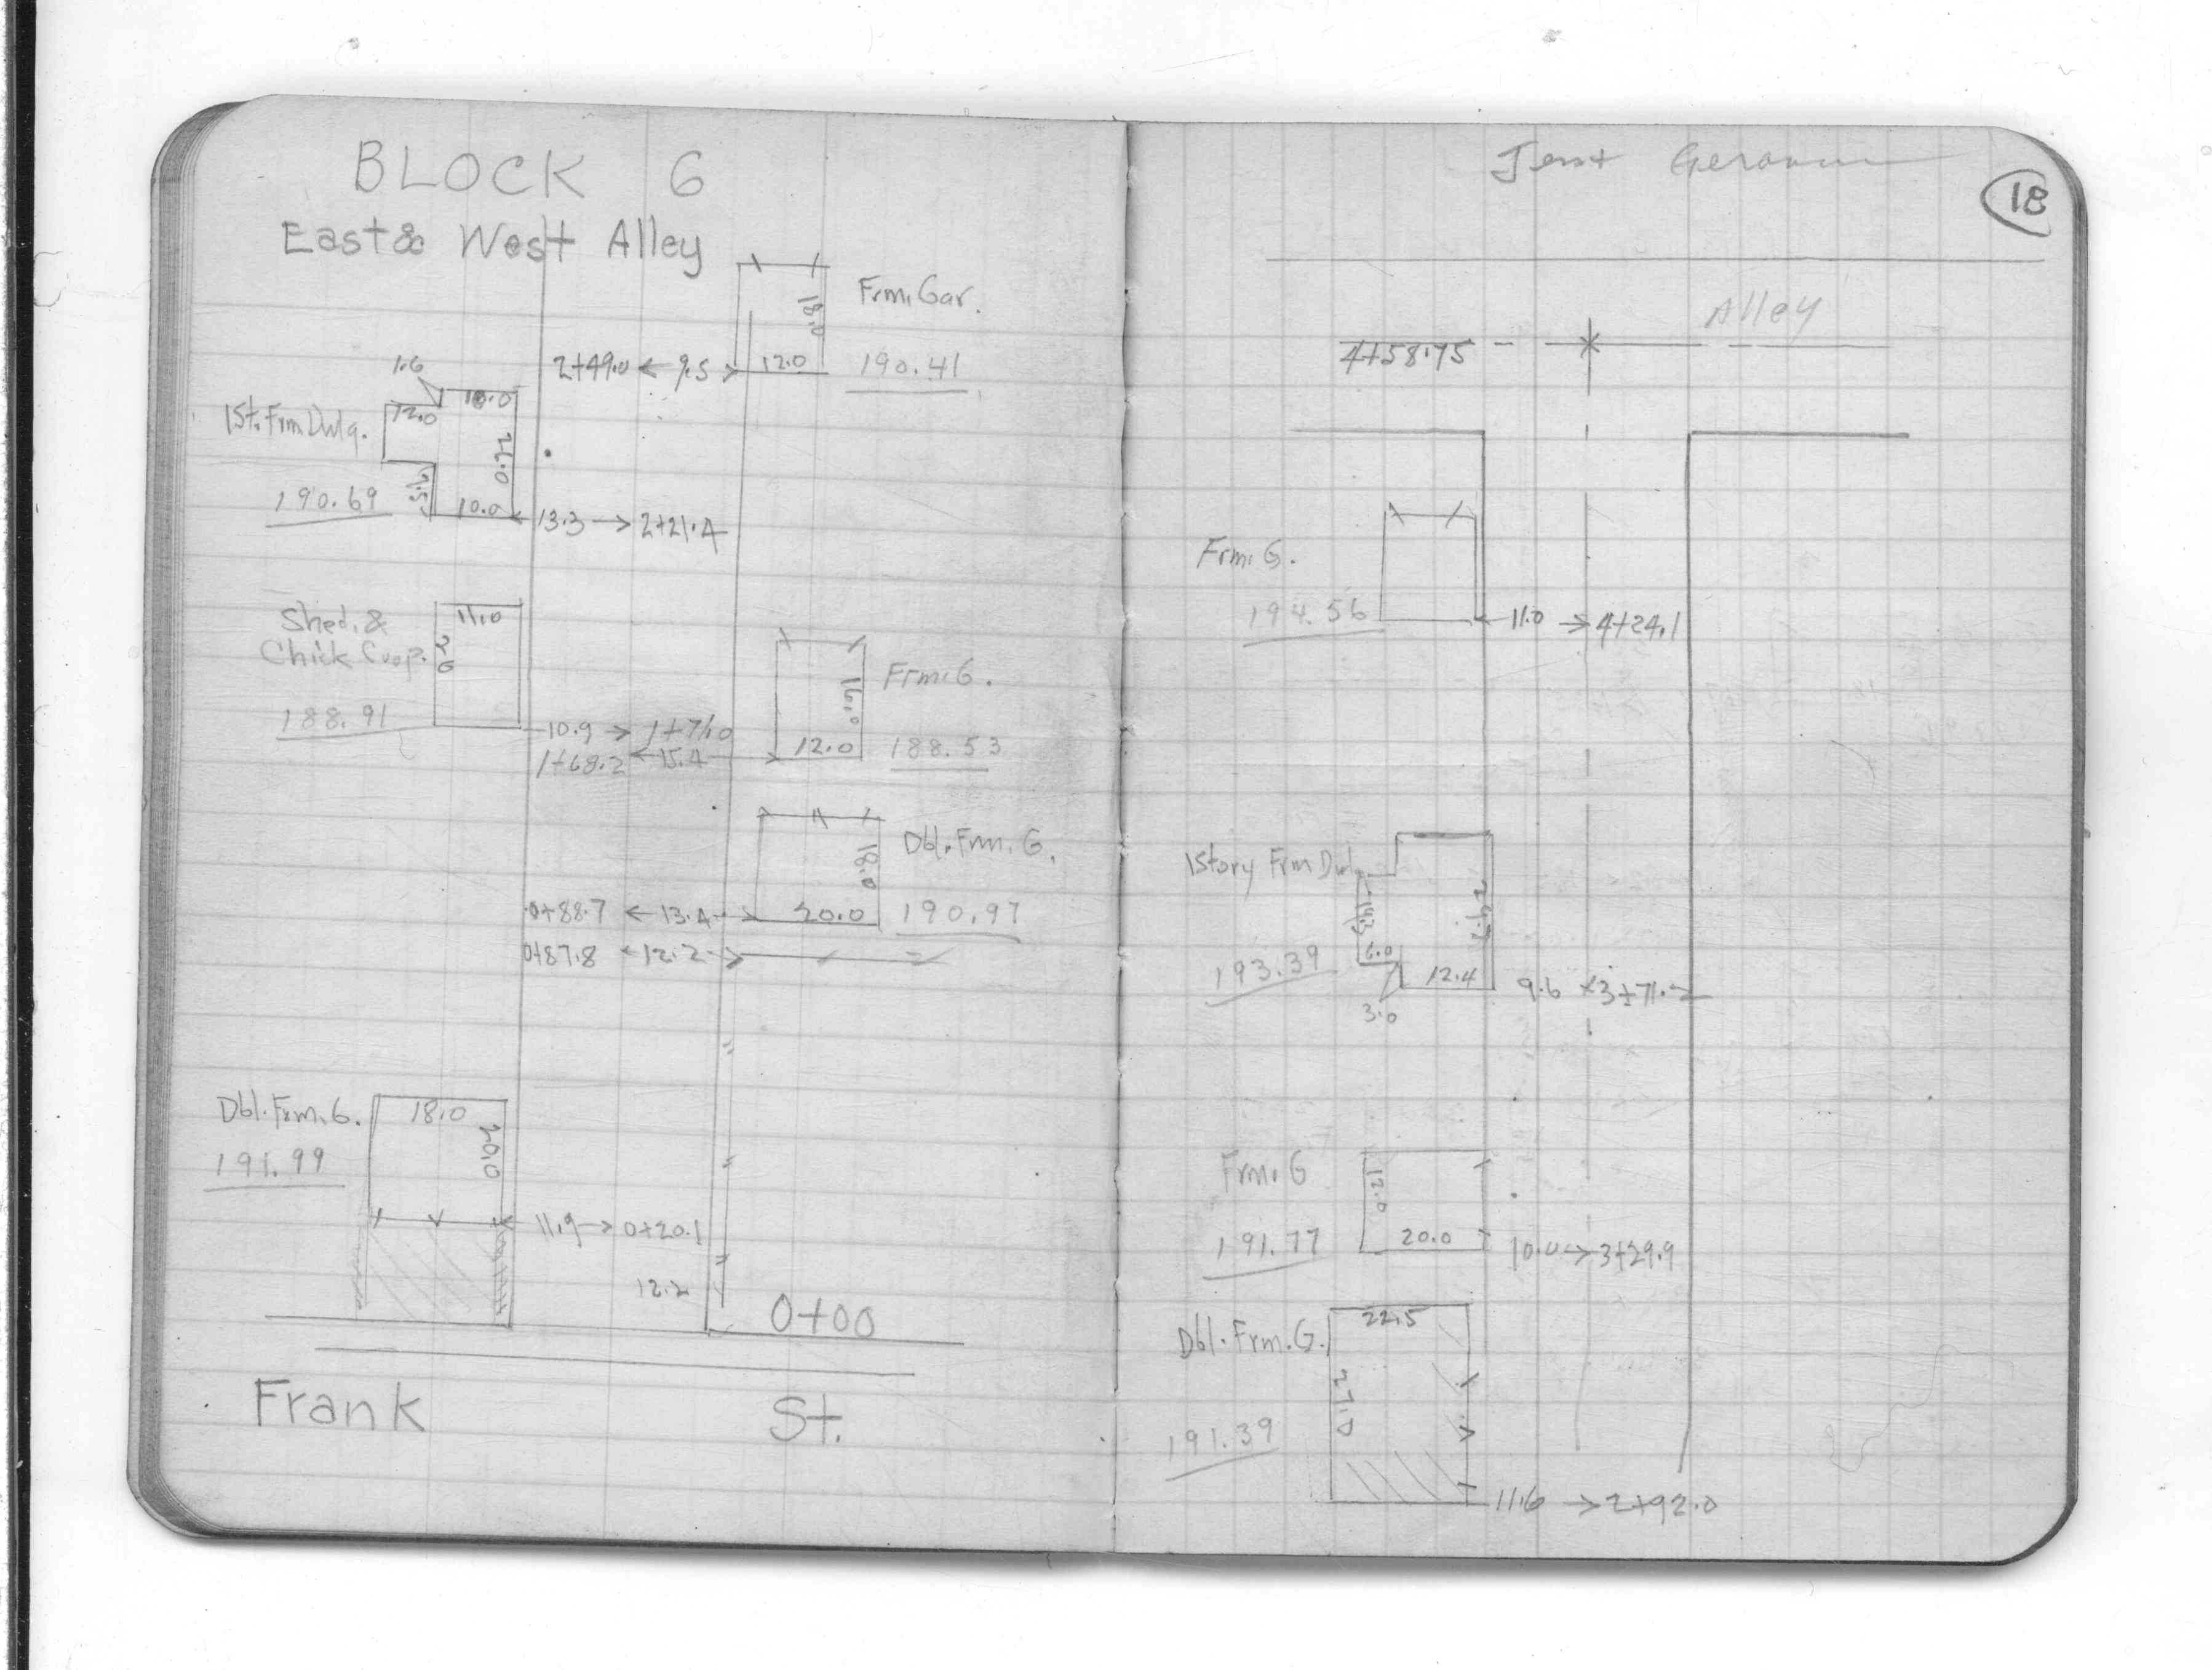 BLOCK 6
East & West Alley
Frm. Gar.
18.0
2+49.0 ← 9.5 → 12.0
190.41
1.6
12.0 10.0
1St. Frm Dwlg.
26.0
190.69
9.5
10.0 13.3 → 2+21.4
Shed. &
Chick Coop.
11.0
26
188.91
10.9 → 1+71.0
Frm. G.
16.0
1+68.2 ← 15.4
12.0
188.53
Dbl. Frm. G.
18.0
0+88.7 ← 13.4 → 20.0
190.97
0+87.8 ← 12.2 →
Dbl. Frm. G.
18.0
20.0
191.99
11.9 → 0+20.1
12.2
0+00
Frank St.
18
Alley
4+58.75
Frm. G.
194.56
11.0 → 4+24.1
1Story Frm Dwl
193.39
6.0
12.4
9.6 3+71.2
3.0
Frm. G
12.0
191.77
20.0
10.0 → 3+29.9
Dbl. Frm. G.
22.5
27.0
191.39
11.6 → 2+92.0